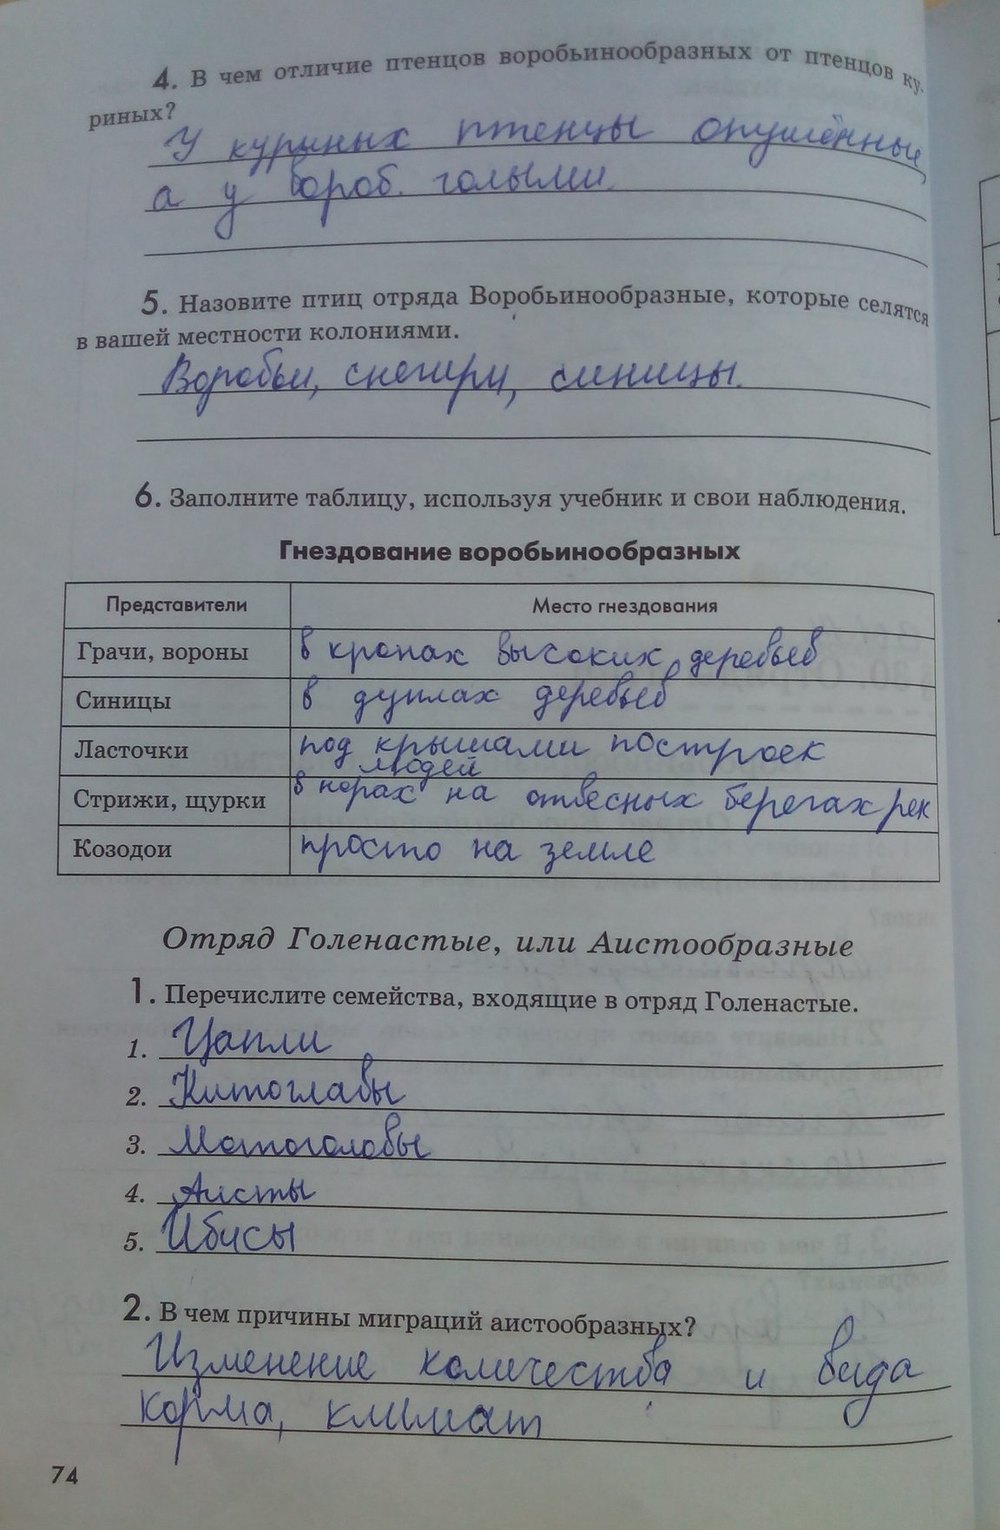 4. В чем отличие птенцов воробьинообразных от птенцов ку-
риных?
У куриных птенцы опушённые,
а у вороб. голыми.
5. Назовите птиц отряда Воробьинообразные, которые селятся
в вашей местности колониями.
Воробьи, снегири, синицы.
6. Заполните таблицу, используя учебник и свои наблюдения.
Гнездование воробьинообразных
Представители Место гнездования
Грачи, вороны в кронах высоких деревьев
Синицы в дуплах деревьев
Ласточки под крышами построек
людей
Стрижи, щурки в норах на отвесных берегах рек
Козодои просто на земле
Отряд Голенастые, или Аистообразные
1. Перечислите семейства, входящие в отряд Голенастые.
1. Цапли
2. Китоглавы
3. Молотоголовы
4. Аисты
5. Ибисы
2. В чем причины миграций аистообразных?
Изменение количества и вида
корма, климат
74